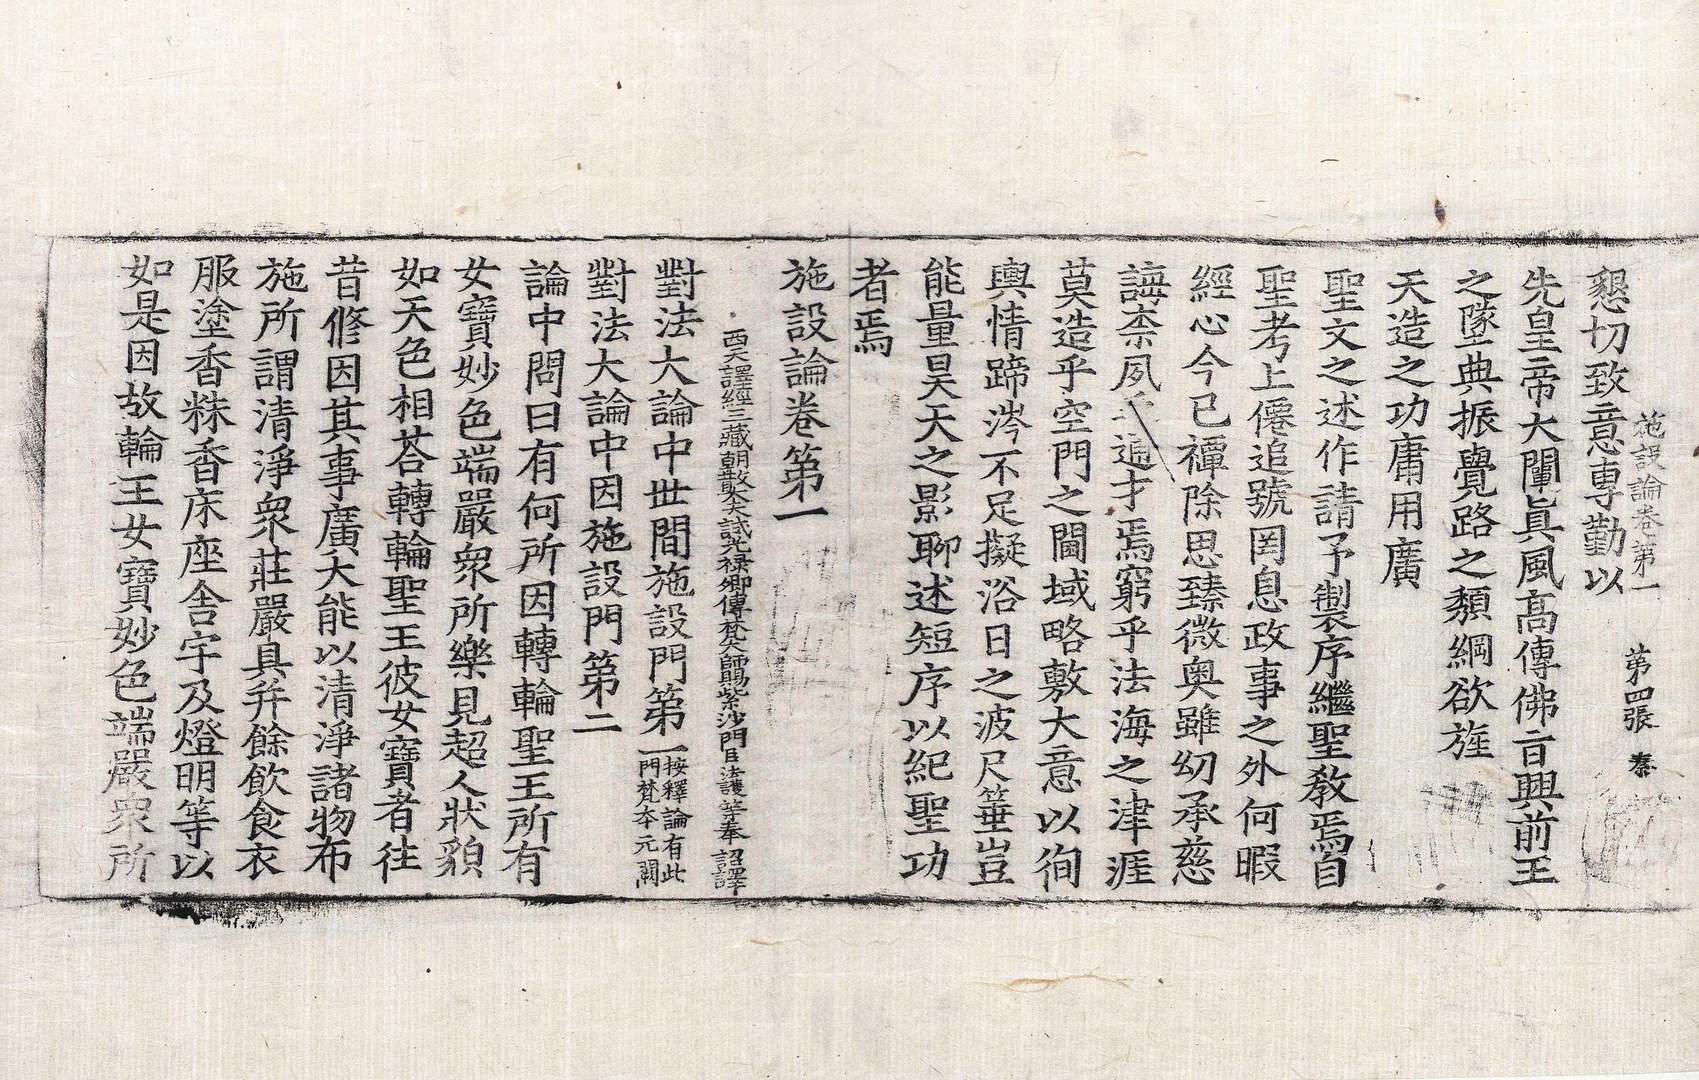 施設論卷第一　第四張　秦
懇切致意專勤以
先皇帝大闡眞風高傳佛旨興前王
之墜典振覺路之頹綱欲旌
天造之功庸用廣
聖文之述作請予製序繼聖教焉自
聖考上僊追號罔息政事之外何暇
經心今已禫除思臻微奧雖幼承慈
誨柰夙乖通才焉窮乎法海之津涯
莫造乎空門之閫域略敷大意以徇
輿情蹄涔不足擬浴日之波尺箠豈
能量昊天之影聊述短序以紀聖功
者焉
施設論卷第一
西天譯經三藏朝散大夫試光祿卿傳梵大師賜紫沙門臣法護等奉 詔譯
對法大論中世間施設門第一按釋論有此門梵本元闕
對法大論中因施設門第二
論中問曰有何所因轉輪聖王所有
女寶妙色端嚴衆所樂見超人狀貌
如天色相荅轉輪聖王彼女寶者往
昔修因其事廣大能以清淨諸物布
施所謂清淨衆莊嚴具幷餘飲食衣
服塗香粖香床座舍宇及燈明等以
如是因故輪王女寶妙色端嚴衆所